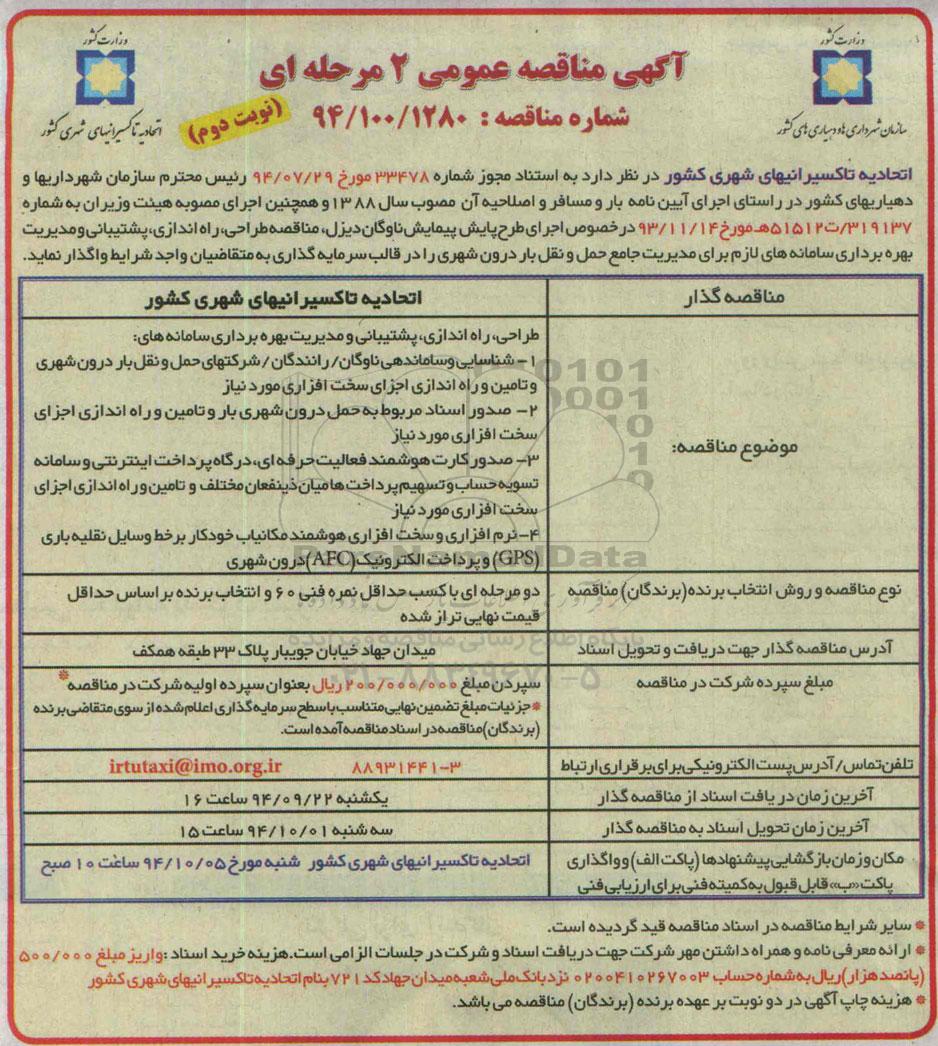 وزارت کشور
سازمان شهرداری ها و دهیاری های کشور
آگهی مناقصه عمومی ۲ مرحله ای
شماره مناقصه : ۹۴/۱۰۰/۱۲۸۰
(نوبت دوم)
وزارت کشور
اتحادیه تاکسیرانیهای شهری کشور
اتحادیه تاکسیرانیهای شهری کشور در نظر دارد به استناد مجوز شماره ۳۳۴۷۸ مورخ ۹۴/۰۷/۲۹ رئیس محترم سازمان شهرداریها و
دهیاریهای کشور در راستای اجرای آیین نامه بار و مسافر و اصلاحیه آن مصوب سال ۱۳۸۸ و همچنین اجرای مصوبه هیئت وزیران به شماره
۳۱۹۱۳۷/ت۵۱۵۱۲هـ مورخ ۹۳/۱۱/۱۴ در خصوص اجرای طرح پایش پیمایش ناوگان دیزل، مناقصه طراحی، راه اندازی، پشتیبانی و مدیریت
بهره برداری سامانه های لازم برای مدیریت جامع حمل و نقل بار درون شهری را در قالب سرمایه گذاری به متقاضیان واجد شرایط واگذار نماید.
مناقصه گذار
اتحادیه تاکسیرانیهای شهری کشور
موضوع مناقصه:
طراحی، راه اندازی، پشتیبانی و مدیریت بهره برداری سامانه های:
۱- شناسایی و ساماندهی ناوگان/ رانندگان / شرکتهای حمل و نقل بار درون شهری
و تامین و راه اندازی اجزای سخت افزاری مورد نیاز
۲- صدور اسناد مربوط به حمل درون شهری بار و تامین و راه اندازی اجزای
سخت افزاری مورد نیاز
۳- صدور کارت هوشمند فعالیت حرفه ای، درگاه پرداخت اینترنتی و سامانه
تسویه حساب و تسهیم پرداخت ها میان ذینفعان مختلف و تامین و راه اندازی اجزای
سخت افزاری مورد نیاز
۴- نرم افزاری و سخت افزاری هوشمند مکانیاب خودکار برخط وسایل نقلیه باری
(GPS) و پرداخت الکترونیک (AFC) درون شهری
نوع مناقصه و روش انتخاب برنده (برندگان) مناقصه
دو مرحله ای با کسب حداقل نمره فنی ۶۰ و انتخاب برنده بر اساس حداقل
قیمت نهایی تراز شده
آدرس مناقصه گذار جهت دریافت و تحویل اسناد
میدان جهاد خیابان جویبار پلاک ۳۳ طبقه همکف
مبلغ سپرده شرکت در مناقصه
سپردن مبلغ ۲۰۰/۰۰۰/۰۰۰ ریال بعنوان سپرده اولیه شرکت در مناقصه*
* جزئیات مبلغ تضمین نهایی متناسب با سطح سرمایه گذاری اعلام شده از سوی متقاضی برنده
(برندگان) مناقصه در اسناد مناقصه آمده است.
تلفن تماس/ آدرس پست الکترونیکی برای برقراری ارتباط
۸۸۹۳۱۴۴۱-۳ irtutaxi@imo.org.ir
آخرین زمان دریافت اسناد از مناقصه گذار
یکشنبه ۹۴/۰۹/۲۲ ساعت ۱۶
آخرین زمان تحویل اسناد به مناقصه گذار
سه شنبه ۹۴/۱۰/۰۱ ساعت ۱۵
مکان و زمان بازگشایی پیشنهادها (پاکت الف) و واگذاری
پاکت «ب» قابل قبول به کمیته فنی برای ارزیابی فنی
اتحادیه تاکسیرانیهای شهری کشور شنبه مورخ ۹۴/۱۰/۰۵ ساعت ۱۰ صبح
* سایر شرایط مناقصه در اسناد مناقصه قید گردیده است.
* ارائه معرفی نامه و همراه داشتن مهر شرکت جهت دریافت اسناد و شرکت در جلسات الزامی است. هزینه خرید اسناد : واریز مبلغ ۵۰۰/۰۰۰
(پانصد هزار) ریال به شماره حساب ۰۲۰۰۴۱۰۲۶۷۰۰۳ نزد بانک ملی شعبه میدان جهاد کد ۷۲۱ بنام اتحادیه تاکسیرانیهای شهری کشور
* هزینه چاپ آگهی در دو نوبت بر عهده برنده (برندگان) مناقصه می باشد.